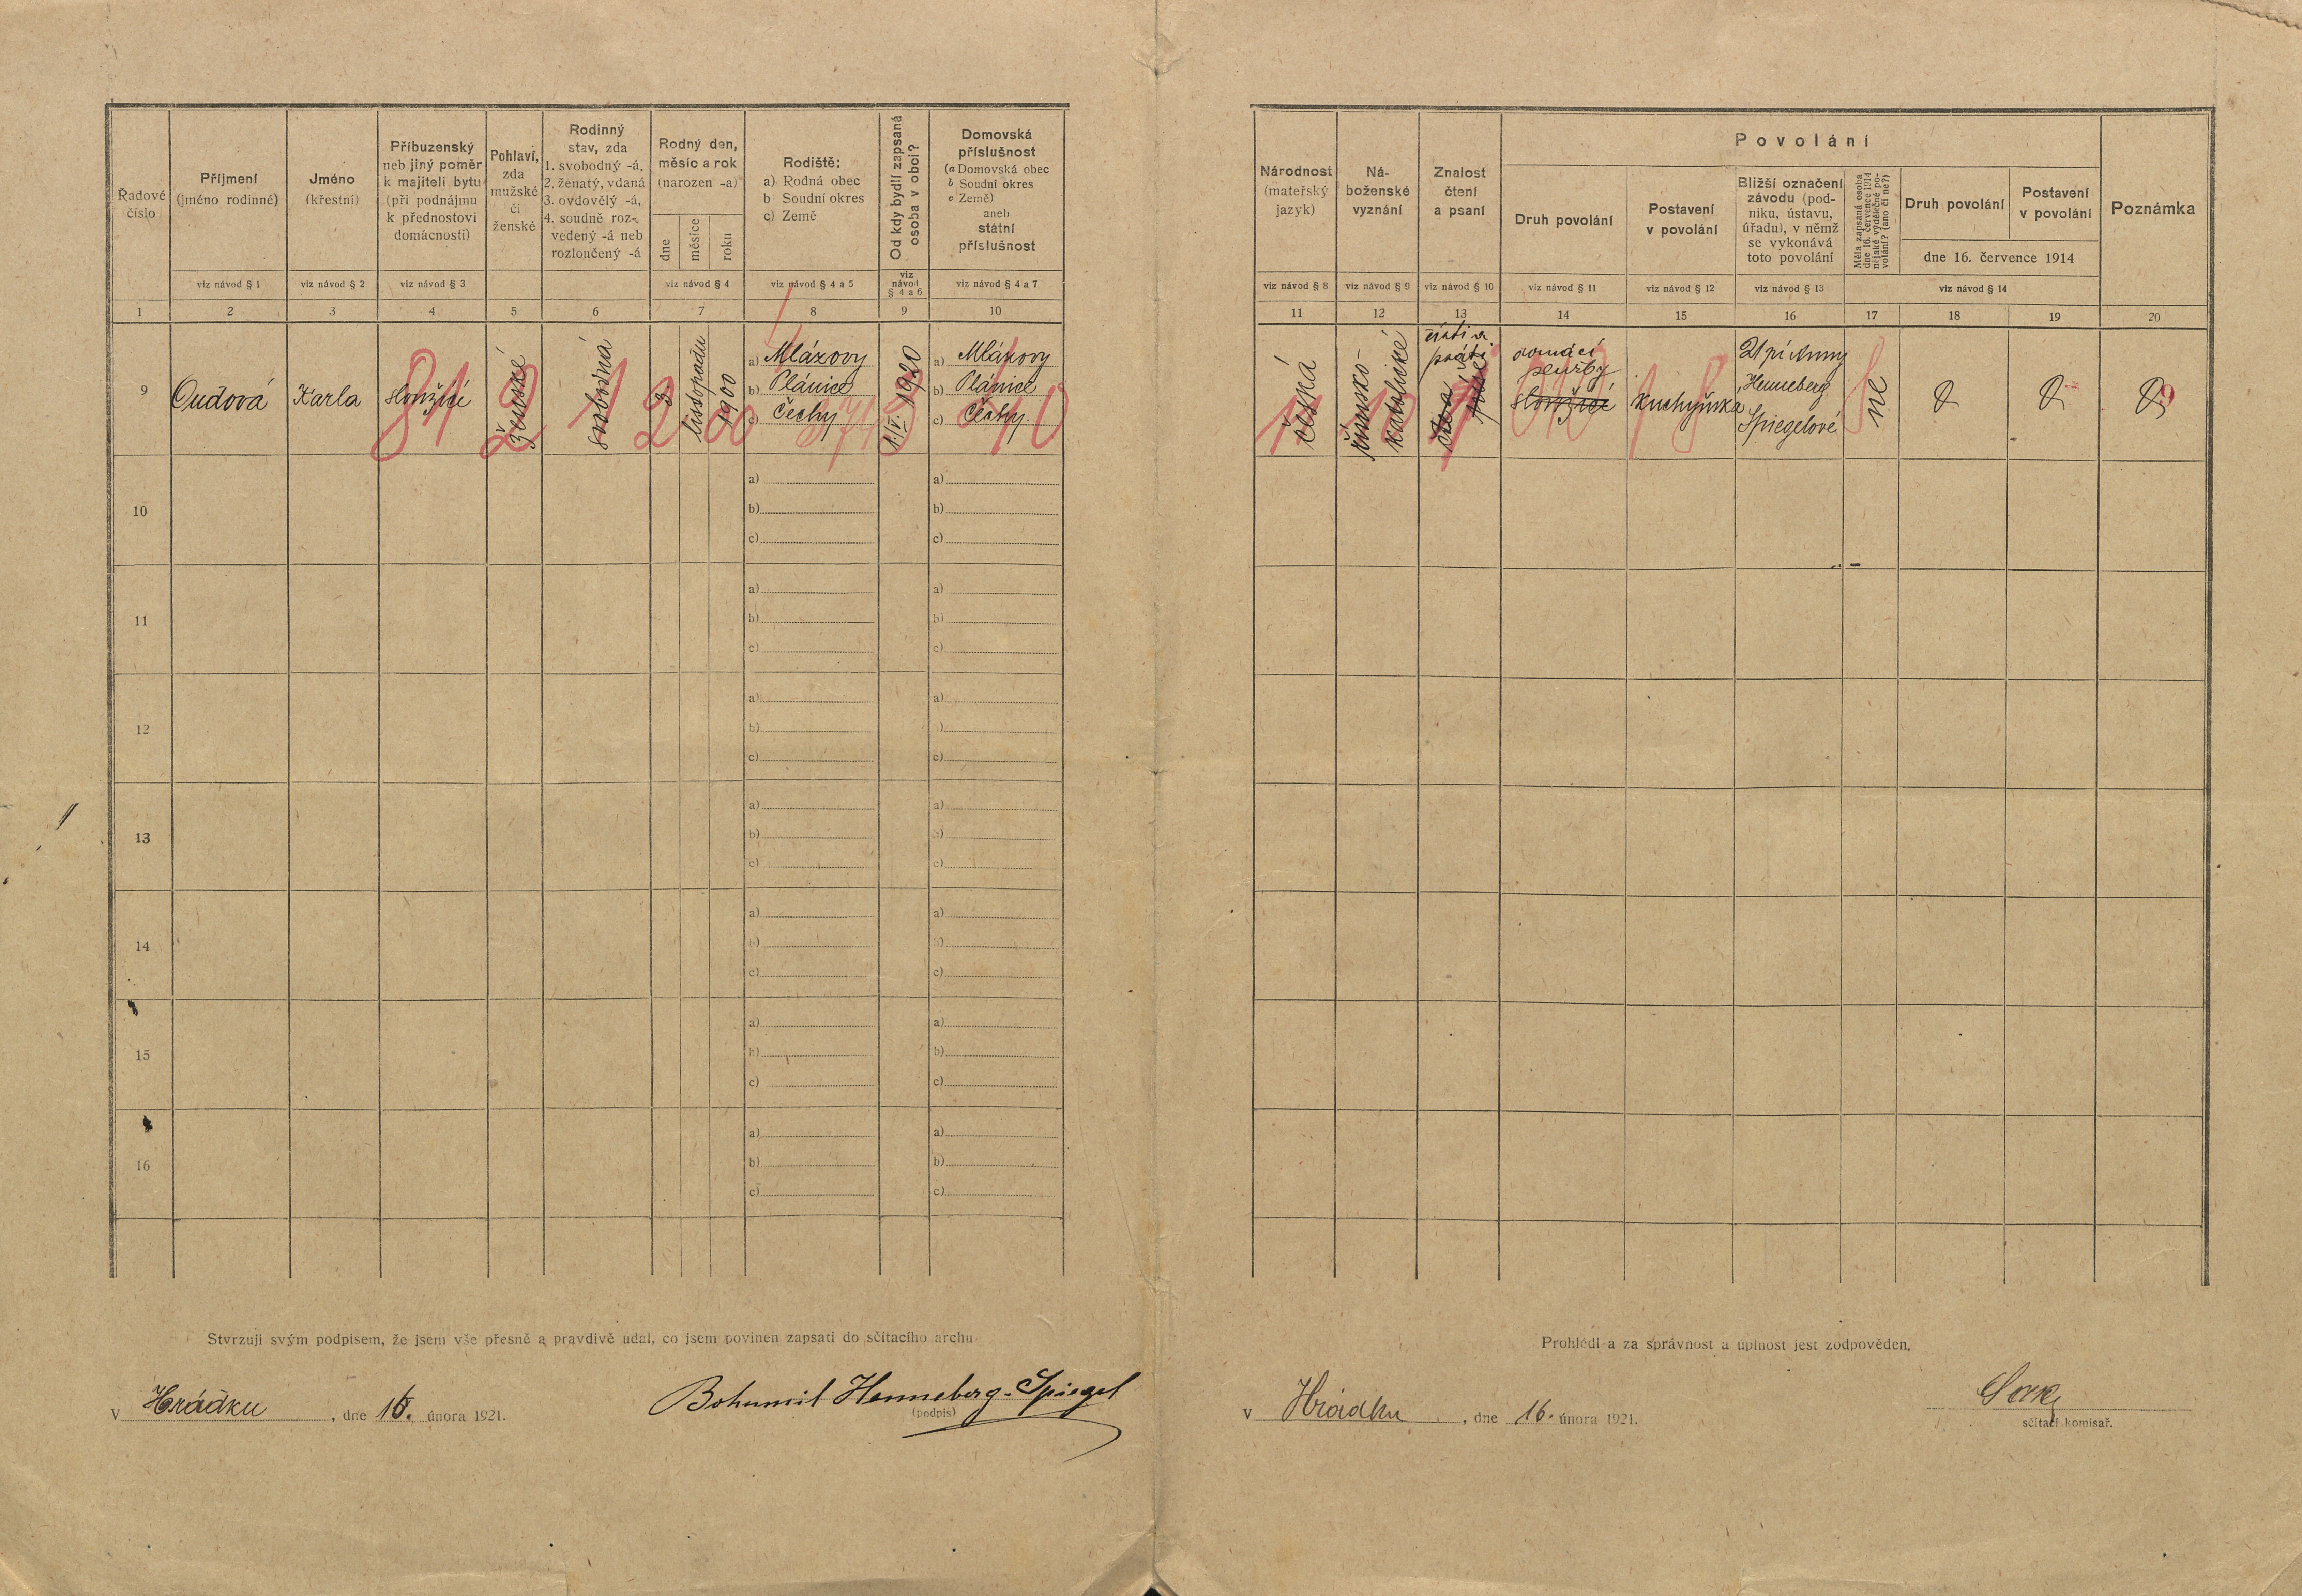 Řadové
číslo
Příjmení
(jméno rodinné)
Jméno
(křestní)
Příbuzenský
neb jiný poměr
k majiteli bytu
(při podnájmu
k přednostovi
domácnosti)
Pohlaví,
zda
mužské
či
ženské
Rodinný
stav, zda
1. svobodný -á,
2. ženatý, vdaná
3. ovdovělý -á,
4. soudně roz-
vedený -á neb
rozloučený -á
Rodný den,
měsíc a rok
(narozen -a)
dne
měsíce
roku
Rodiště:
a) Rodná obec
b Soudní okres
c) Země
Od kdy bydlí zapsaná
osoba v obci?
Domovská
příslušnost
(a Domovská obec
b Soudní okres
c Země)
aneb
státní
příslušnost
viz návod § 1
viz návod § 2
viz návod § 3
viz návod § 4
viz návod § 4 a 5
viz
návod
§ 4 a 6
viz návod § 4 a 7
1 2 3 4 5 6 7 8 9 10
9
Oudová
Karla
sloužící
81
ženské
2
svobodná
1
3
listopadu
1900
a) Mlázovy
b) Plánice
c) Čechy
1/V. 1920
a) Mlázovy
b) Plánice
c) Čechy
10
a) a)
b) b)
c) c)
11
a) a)
b) b)
c) c)
12
a) a)
b) b)
c) c)
13
a) a)
b) b)
c) c)
14
a) a)
b) b)
c) c)
15
a) a)
b) b)
c) c)
16
a) a)
b) b)
c) c)
Stvrzuji svým podpisem, že jsem vše přesně a pravdivě udal, co jsem povinen zapsati do sčítacího archu
V Hrádku, dne 16. února 1921.
Bohumil Henneberg-Spiegel
(podpis)
Národnost
(mateřský
jazyk)
Ná-
boženské
vyznání
Znalost
čtení
a psaní
Povolání
Druh povolání
Postavení
v povolání
Bližší označení
závodu (pod-
niku, ústavu,
úřadu), v němž
se vykonává
toto povolání
Měla zapsaná osoba
dne 16. července 1914
nějaké výdělečné po-
volání? (ano či ne?)
Druh povolání
Postavení
v povolání
dne 16. července 1914
Poznámka
viz návod § 8
viz návod § 9
viz návod § 10
viz návod § 11
viz návod § 12
viz návod § 13
viz návod § 14
11 12 13 14 15 16 17 18 19 20
česká
římsko-
katolické
čísti a
psáti
domácí
služby
sloužící
kuchyňka
Henneberg
Spiegelové
ne
Prohlédl a za správnost a úplnost jest zodpověden.
V Hrádku, dne 16. února 1921.
sčítací komisař.